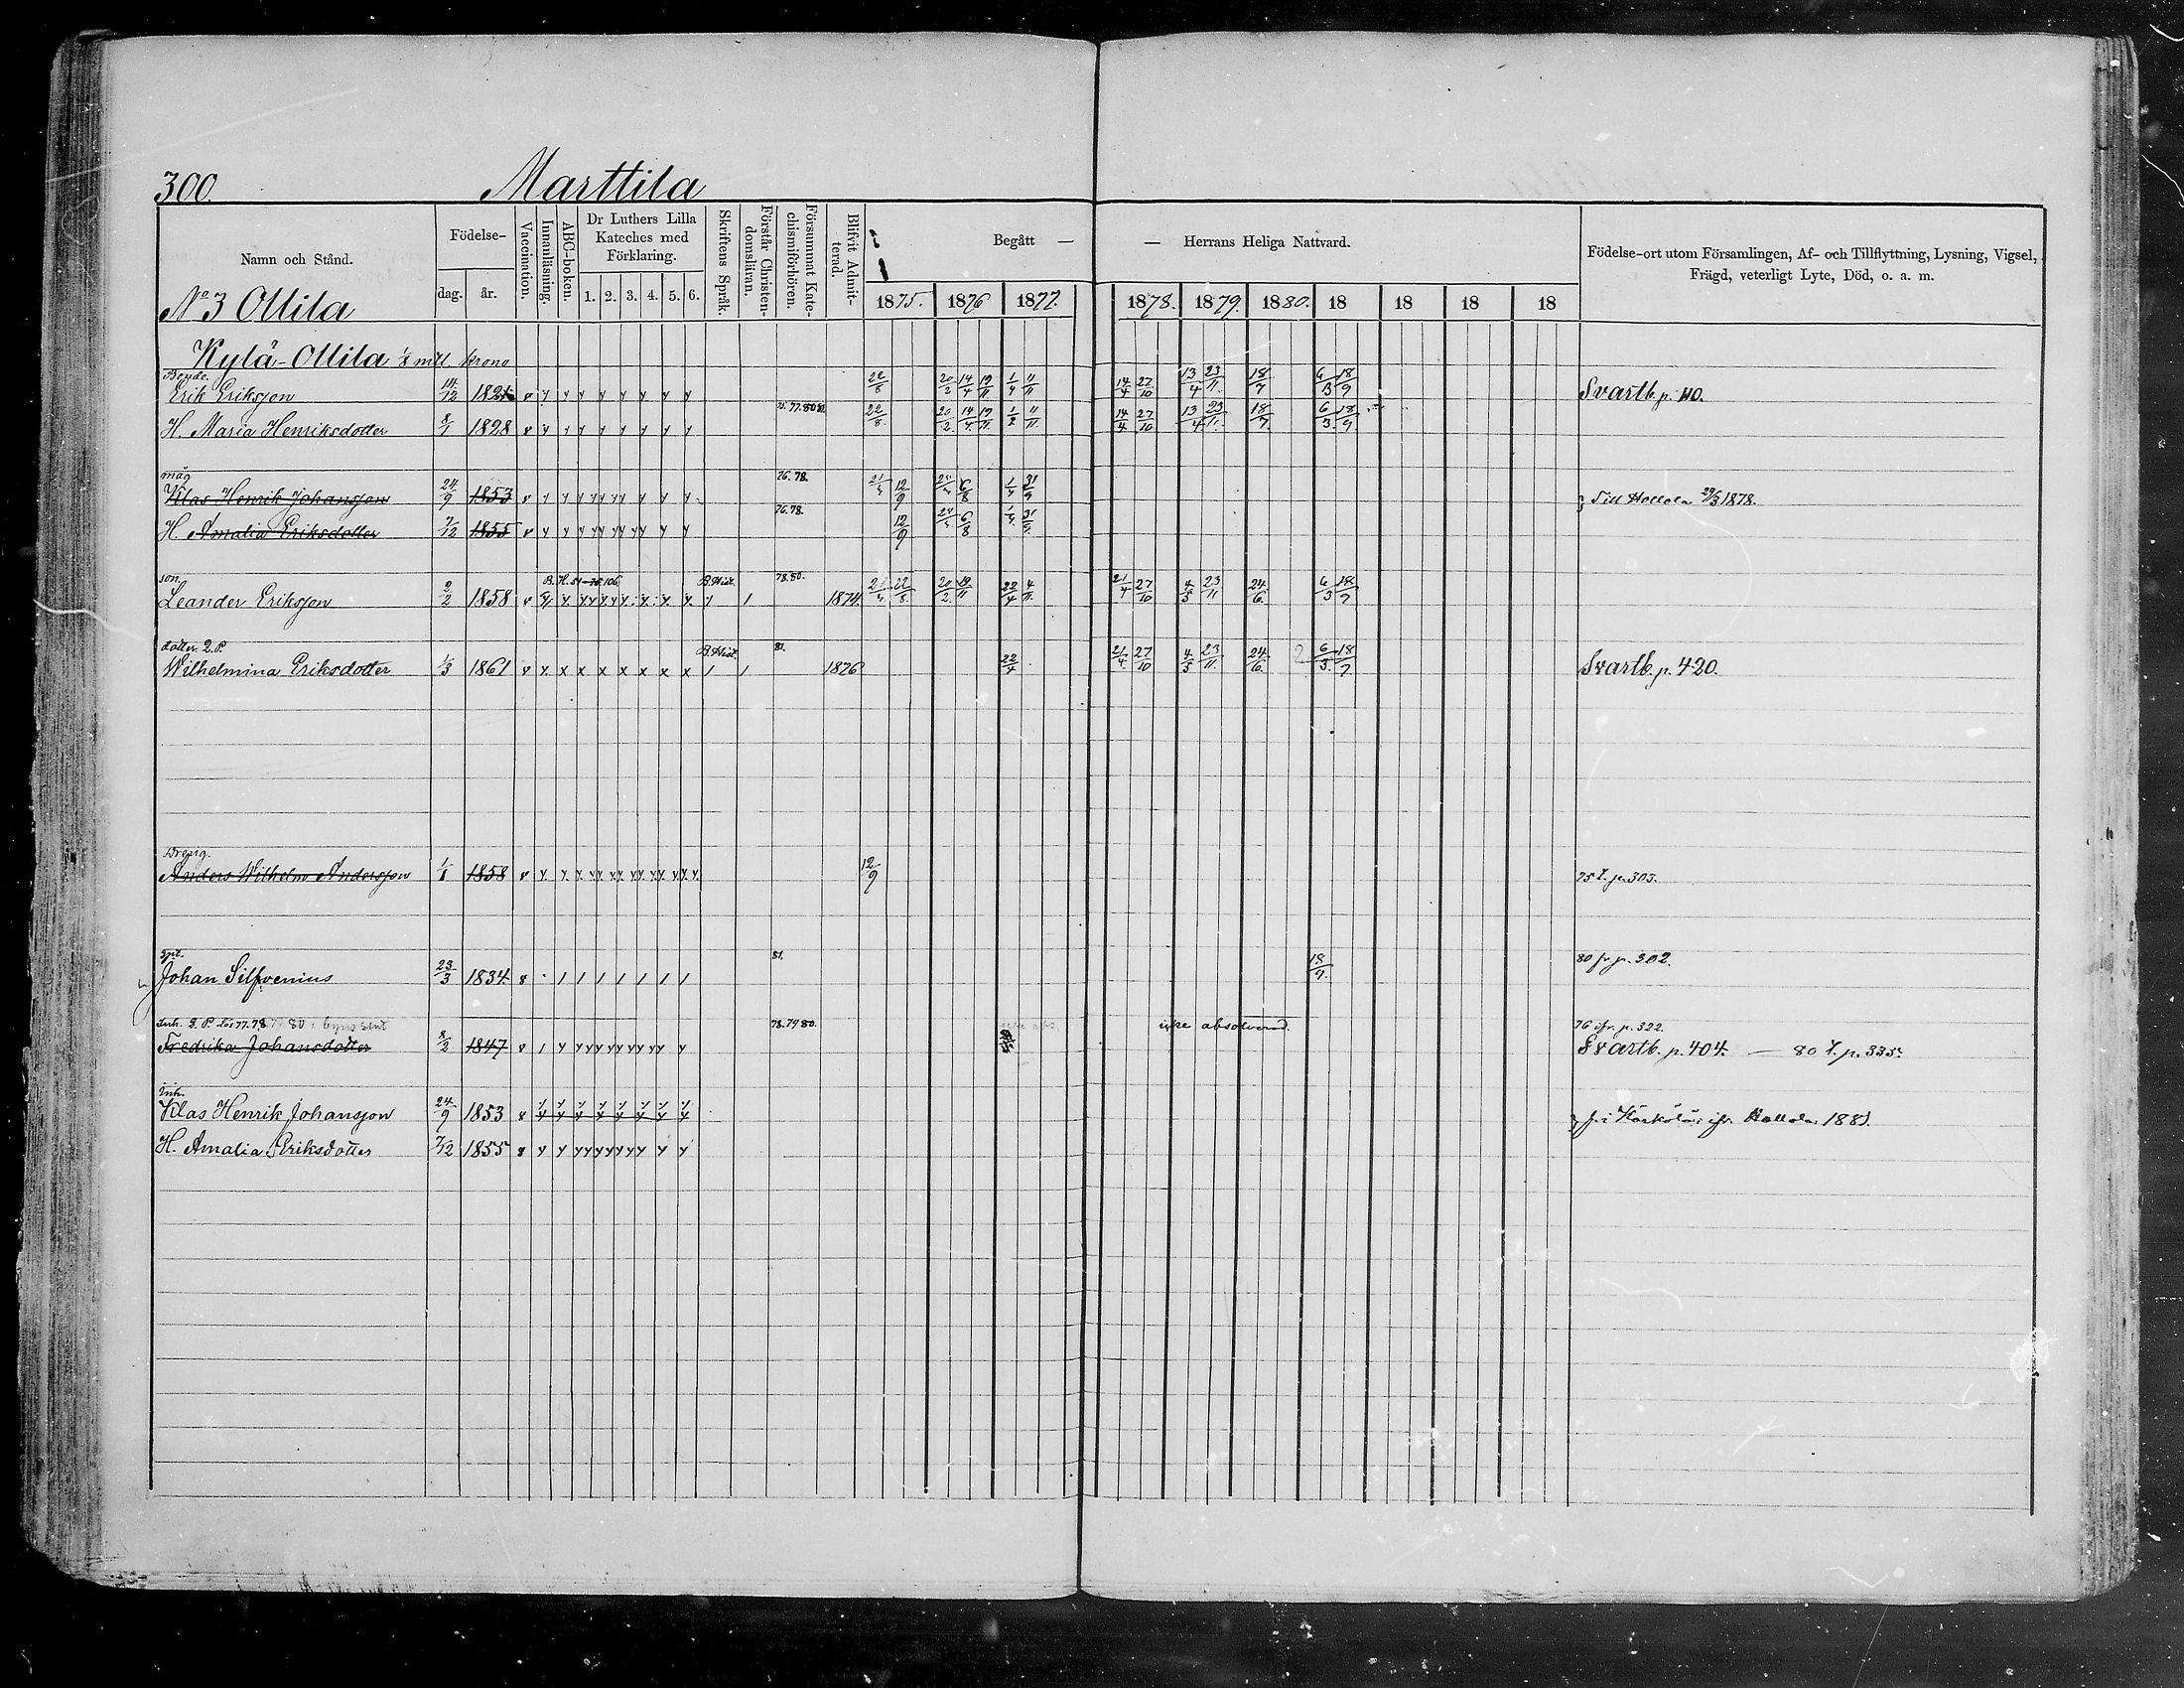 300. Marttila
Namn och Stånd. Födelse- dag. år. Vaccination. Innanläsning. ABC-boken. Dr Luthers Lilla Kateches med Förklaring. 1. 2. 3. 4. 5. 6. Skriftens Språk. Förstår Christendomsläran. Försummat Katechismiförhören. Blifvit Admitterad. Begått — — Herrans Heliga Nattvard. Födelse-ort utom Församlingen, Af- och Tillflyttning, Lysning, Vigsel, Frägd, veterligt Lyte, Död, o. a. m.
1875. 1876 1877. 1878. 1879. 1880. 18 18 18 18
No 3 Ollila
Kylä-Ollila 1/8 mtl. krono
Bonde.
Erik Eriksson 14/12 1821 v y y y y y y y y 22/8 20/2 14/4 19/11 1/4 11/11 14/4 27/10 13/4 23/11. 18/7 6/3 18/9 Svartb. p. 40.
H. Maria Henriksdotter 8/1 1828 v y y y y y y y y 75. 77. 80 81. 22/8. 20/2. 14/4. 19/11. 1/4 11/11. 14/4 27/10 13/4 23/11. 18/7. 6/3. 18/9.
måg
Klas Henrik Johansson 24/9 1853 v y y y y y y y y y 76. 78. 21/4 12/9 6/8 1/4 31/9 Till Hollola 29/3 1878.
H. Amalia Eriksdotter 7/12 1855 v y y y y y y y y y 76. 78. 12/9 6/8
son. B. H. 51-76. 106. B. Hist. 78. 80.
Leander Eriksson 2/2 1858 v y. y. y y y y y. y. y. 1 1 1874. 22/8. 20/2. 19/11 22/4 4/11. 21/4 27/10 4/5 23/11 24/6. 6/3 18/9
dotter. Q. P. B. Hist. 81.
Wilhelmina Eriksdotter 1/3 1861 v x. x x x x x x x 1 1 1876 22/4 21/4. 27/10 4/5 23/11. 24/6. 2 6/3. 18/9. Svartb. p. 420.
Dreng.
Anders Wilhelm Andersson 1/1 1858 v y. y. y. yy yy yy yy yy yy 12/9 75 t. p. 303.
spt. 81.
Johan Silfvenius 23/3 1834. v · 1 1 1 1 1 1 1 18/9. 80 fr. p. 302.
Inh. Q. P. 77. 78 79 80 78. 79 80. icke absolverad. 76 ifr. p. 322.
Fredrika Johansdotter 8/2 1847 v 1 y y y y y y y y y y Svartb. p. 404. — 80 t. p. 335.
Inh.
Klas Henrik Johansson 24/9 1853 v y y y y y y y y f. i Kärkölä, ifr. Hollola 1881.
H. Amalia Eriksdotter 7/12 1855 v y y y y y y y y y y